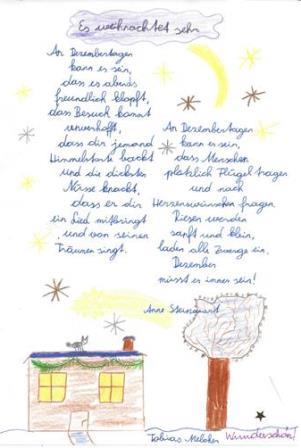 Es weihnachtet sehr
An Dezembertagen
kann es sein,
dass es abends
freundlich klopft,
dass Besuch kommt
unverhofft,
dass dir jemand
Himmelstorte backt
und die dicksten
Nüsse knackt,
dass er dir
ein Lied mitbringt
und von seinen
Träumen singt.
An Dezembertagen
kann es sein,
dass Menschen
plötzlich Flügel tragen
und nach
Herzenswünschen fragen.
Riesen werden
sanft und klein,
laden alle Zwerge ein.
Dezember
müsst es immer sein!
Anne Steinwart
Tobias Melcher
Wunderschön!